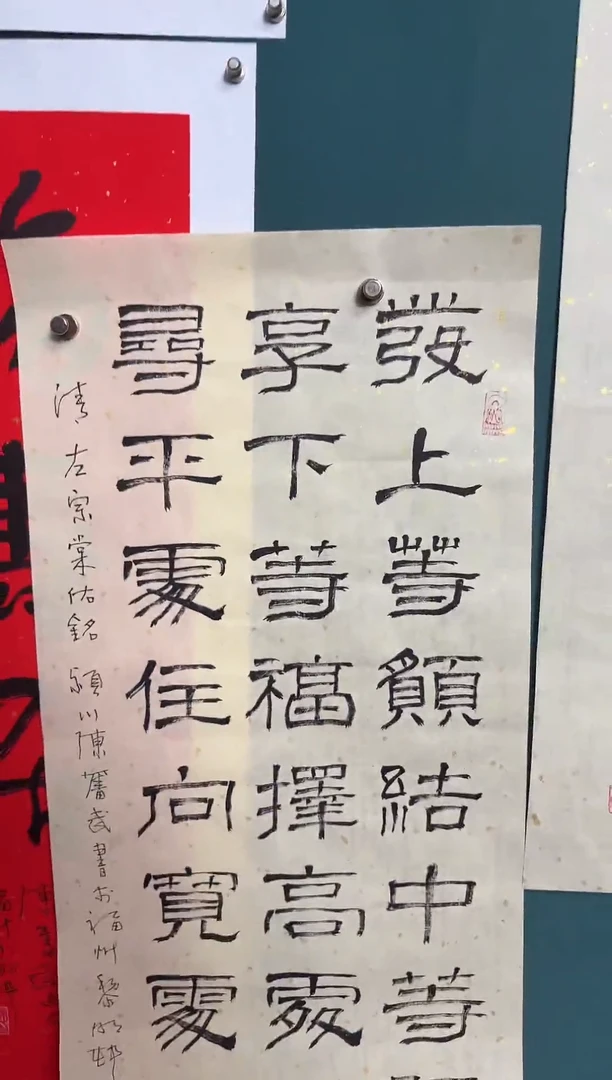 發上等願結中等
享下等福擇高處
尋平處住向寬處
清 左宗棠佑銘 潁川陳書於福州黎明村